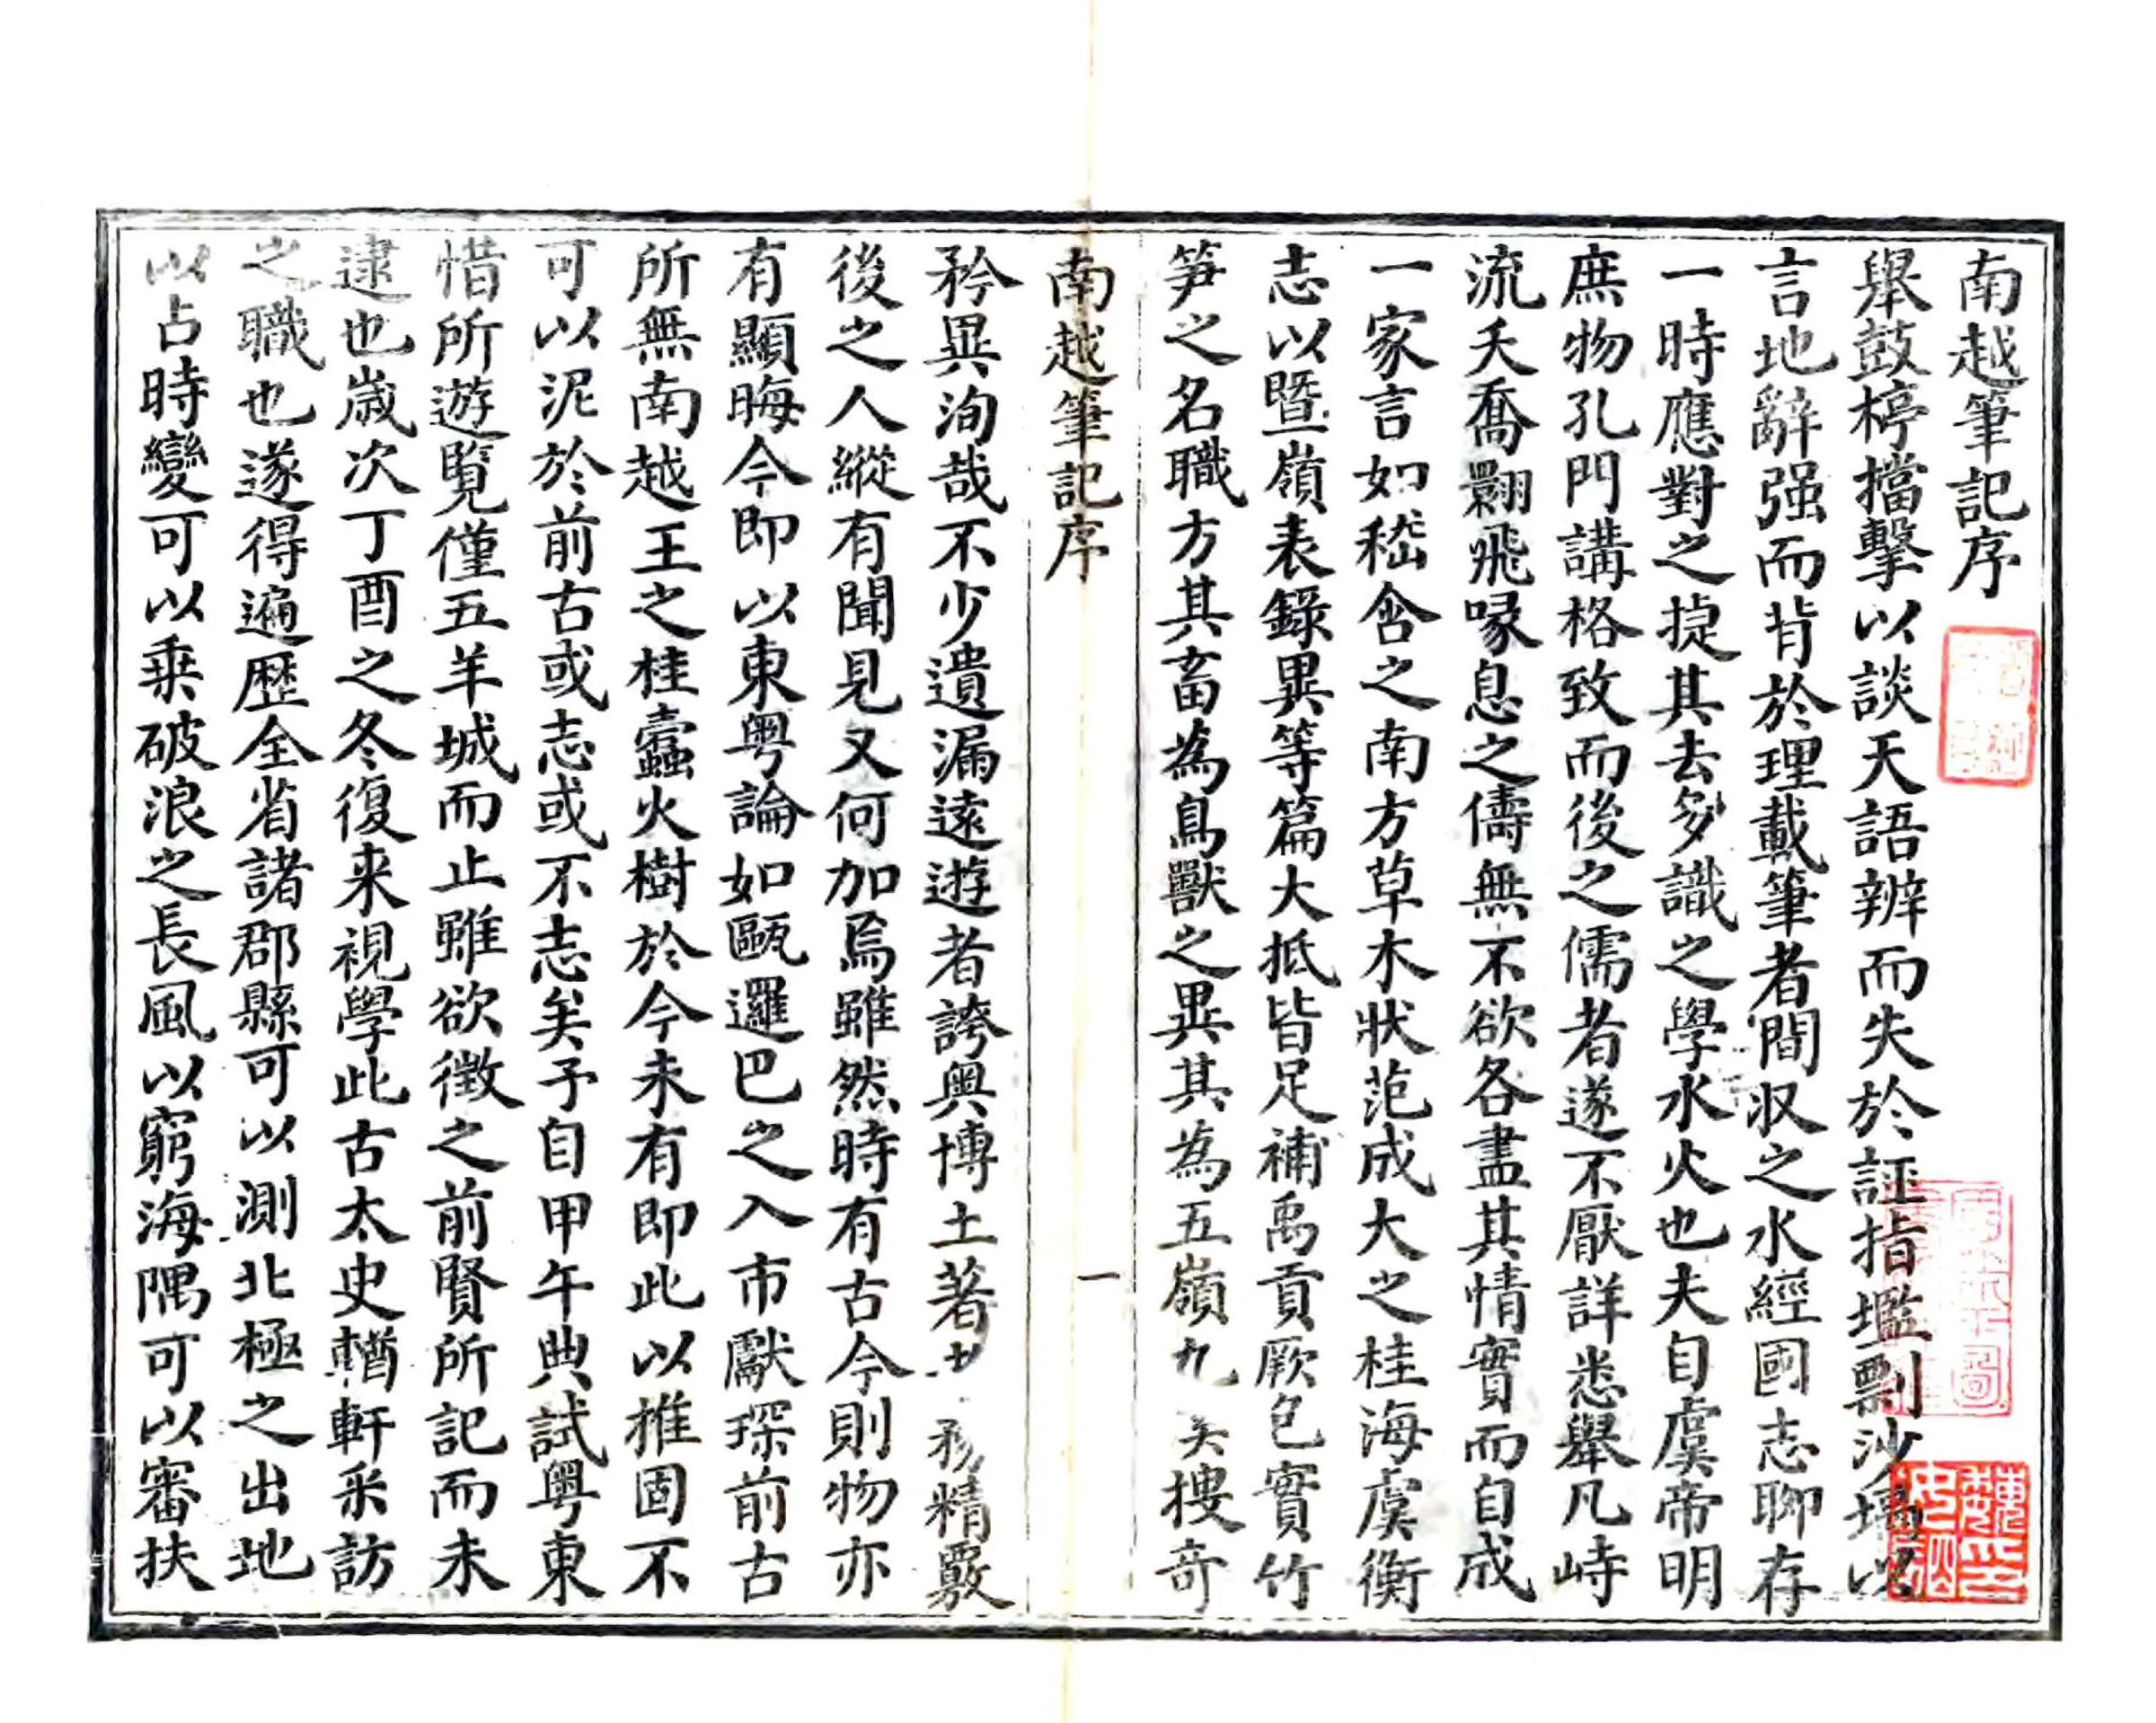 南越筆記序
舉鼓楟擋擊以談天語辨而失於誣指壏剽沙壖以
言地辭强而背於理載筆者間収之水經國志聊存
一時應對之捷其去多識之學水火也夫自虞帝明
庶物孔門講格致而後之儒者遂不厭詳悉舉凡峙
流夭喬翾飛喙息之儔無不欲各盡其情實而自成
一家言如嵇含之南方草木狀范成大之桂海虞衡
志以暨嶺表錄異等篇大抵皆足補禹貢厥包實竹
笋之名職方其畜為鳥獸之異其為五嶺九 搜奇
南越筆記序
一
矜異洵哉不少遺漏遠遊者誇奧博土著 務精覈
後之人縱有聞見又何加焉雖然時有古今則物亦
有顯晦今即以東粤論如甌邏巴之入市獻琛前古
所無南越王之桂蠹火樹於今未有即此以推固不
可以泥於前古或志或不志矣予自甲午典試粤東
惜所遊覽僅五羊城而止雖欲徵之前賢所記而未
逮也歲次丁酉之冬復来視學此古太史輶軒采訪
之職也遂得遍歷全省諸郡縣可以測北極之出地
以占時變可以乗破浪之長風以窮海隅可以審扶